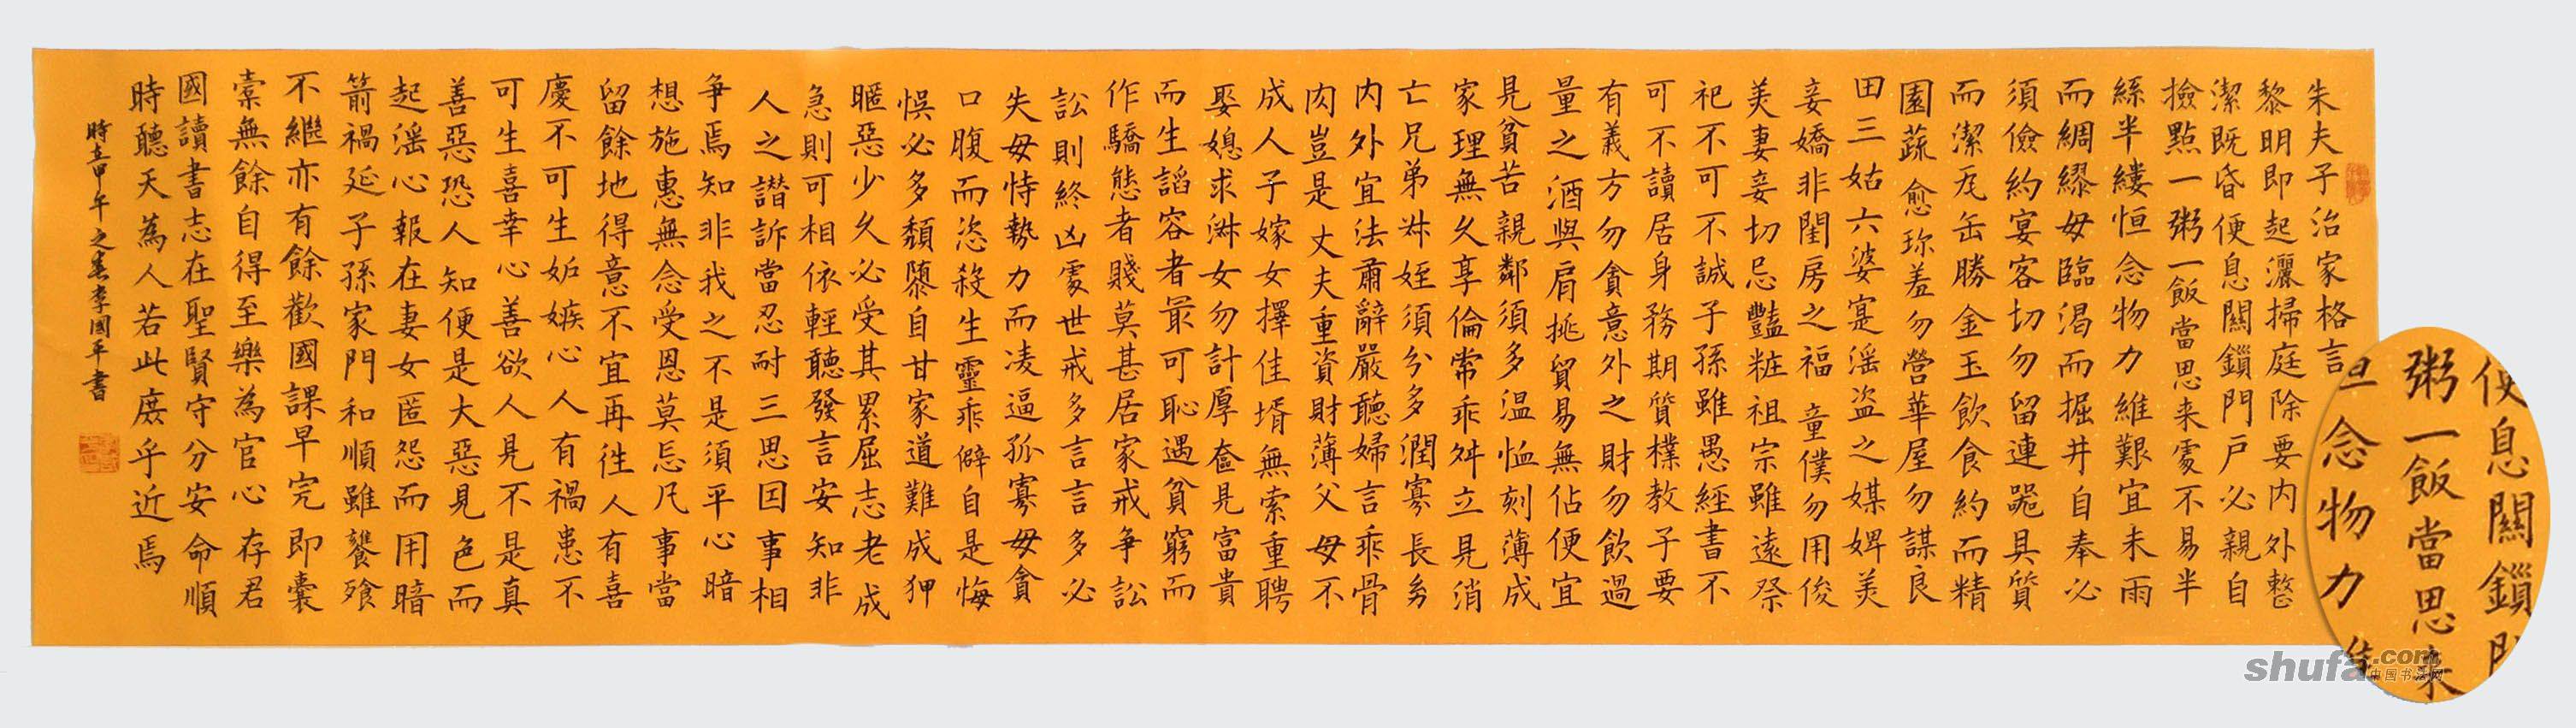 朱夫子治家格言
黎明即起灑掃庭除要內外整
潔既昏便息關鎖門戶必親自
撿點一粥一飯當思来處不易半
絲半縷恒念物力維艱宜未雨
而綢繆毋臨渴而掘井自奉必
須儉約宴客切勿留連器具質
而潔瓦缶勝金玉飲食約而精
園蔬愈珍羞勿營華屋勿謀良
田三姑六婆寔滛盗之媒婢美
妾嬌非閨房之福童僕勿用俊
美妻妾切忌豔粧祖宗雖遠祭
祀不可不誠子孫雖愚經書不
可不讀居身務期質樸教子要
有義方勿貪意外之財勿飲過
量之酒與肩挑貿易無佔便宜
見貧苦親鄰須多温恤刻薄成
家理無久享倫常乖舛立見消
亡兄弟叔姪須分多潤寡長幼
内外宜法肅辭嚴聽婦言乖骨
肉豈是丈夫重資財薄父母不
成人子嫁女擇佳壻無索重聘
娶媳求淑女勿計厚奩見富貴
而生諂容者最可恥遇貧窮而
作驕態者賤莫甚居家戒争訟
訟則終凶處世戒多言言多必
失毋恃勢力而凌逼孤寡毋貪
口腹而恣殺生靈乖僻自是悔
悞必多頽隳自甘家道難成狎
暱惡少久必受其累屈志老成
急則可相依輕聽發言安知非
人之譖訴當忍耐三思因事相
争焉知非我之不是須平心暗
想施惠無念受恩莫忘凡事當
留餘地得意不宜再徃人有喜
慶不可生妬嫉心人有禍患不
可生喜幸心善欲人見不是真
善惡恐人知便是大惡見色而
起滛心報在妻女匿怨而用暗
箭禍延子孫家門和順雖饔飱
不繼亦有餘歡國課早完即囊
橐無餘自得至樂為官心存君
國讀書志在聖賢守分安命順
時聽天為人若此庶乎近焉
時在甲午之春李國平書
便息關鎖門
粥一飯當思来
恒念物力維
shufa.com
中国书法网